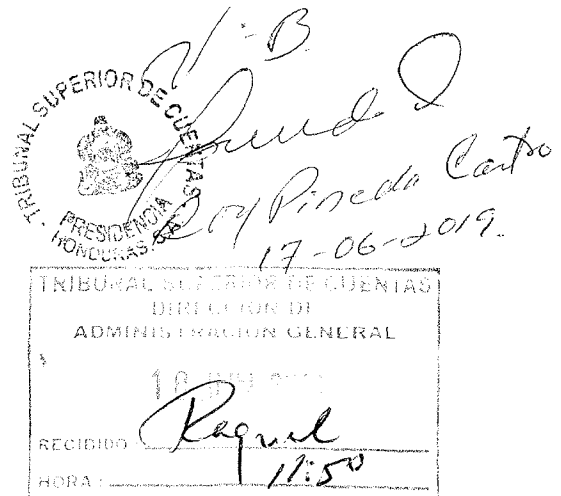 V°B
TRIBUNAL SUPERIOR DE CUENTAS
PRESIDENCIA
HONDURAS, C.A.
Roy Pineda Castro
17-06-2019.
TRIBUNAL SUPERIOR DE CUENTAS
DIRECCION DE
ADMINISTRACION GENERAL
18 JUN
RECIBIDO: Raquel
HORA: 11:50